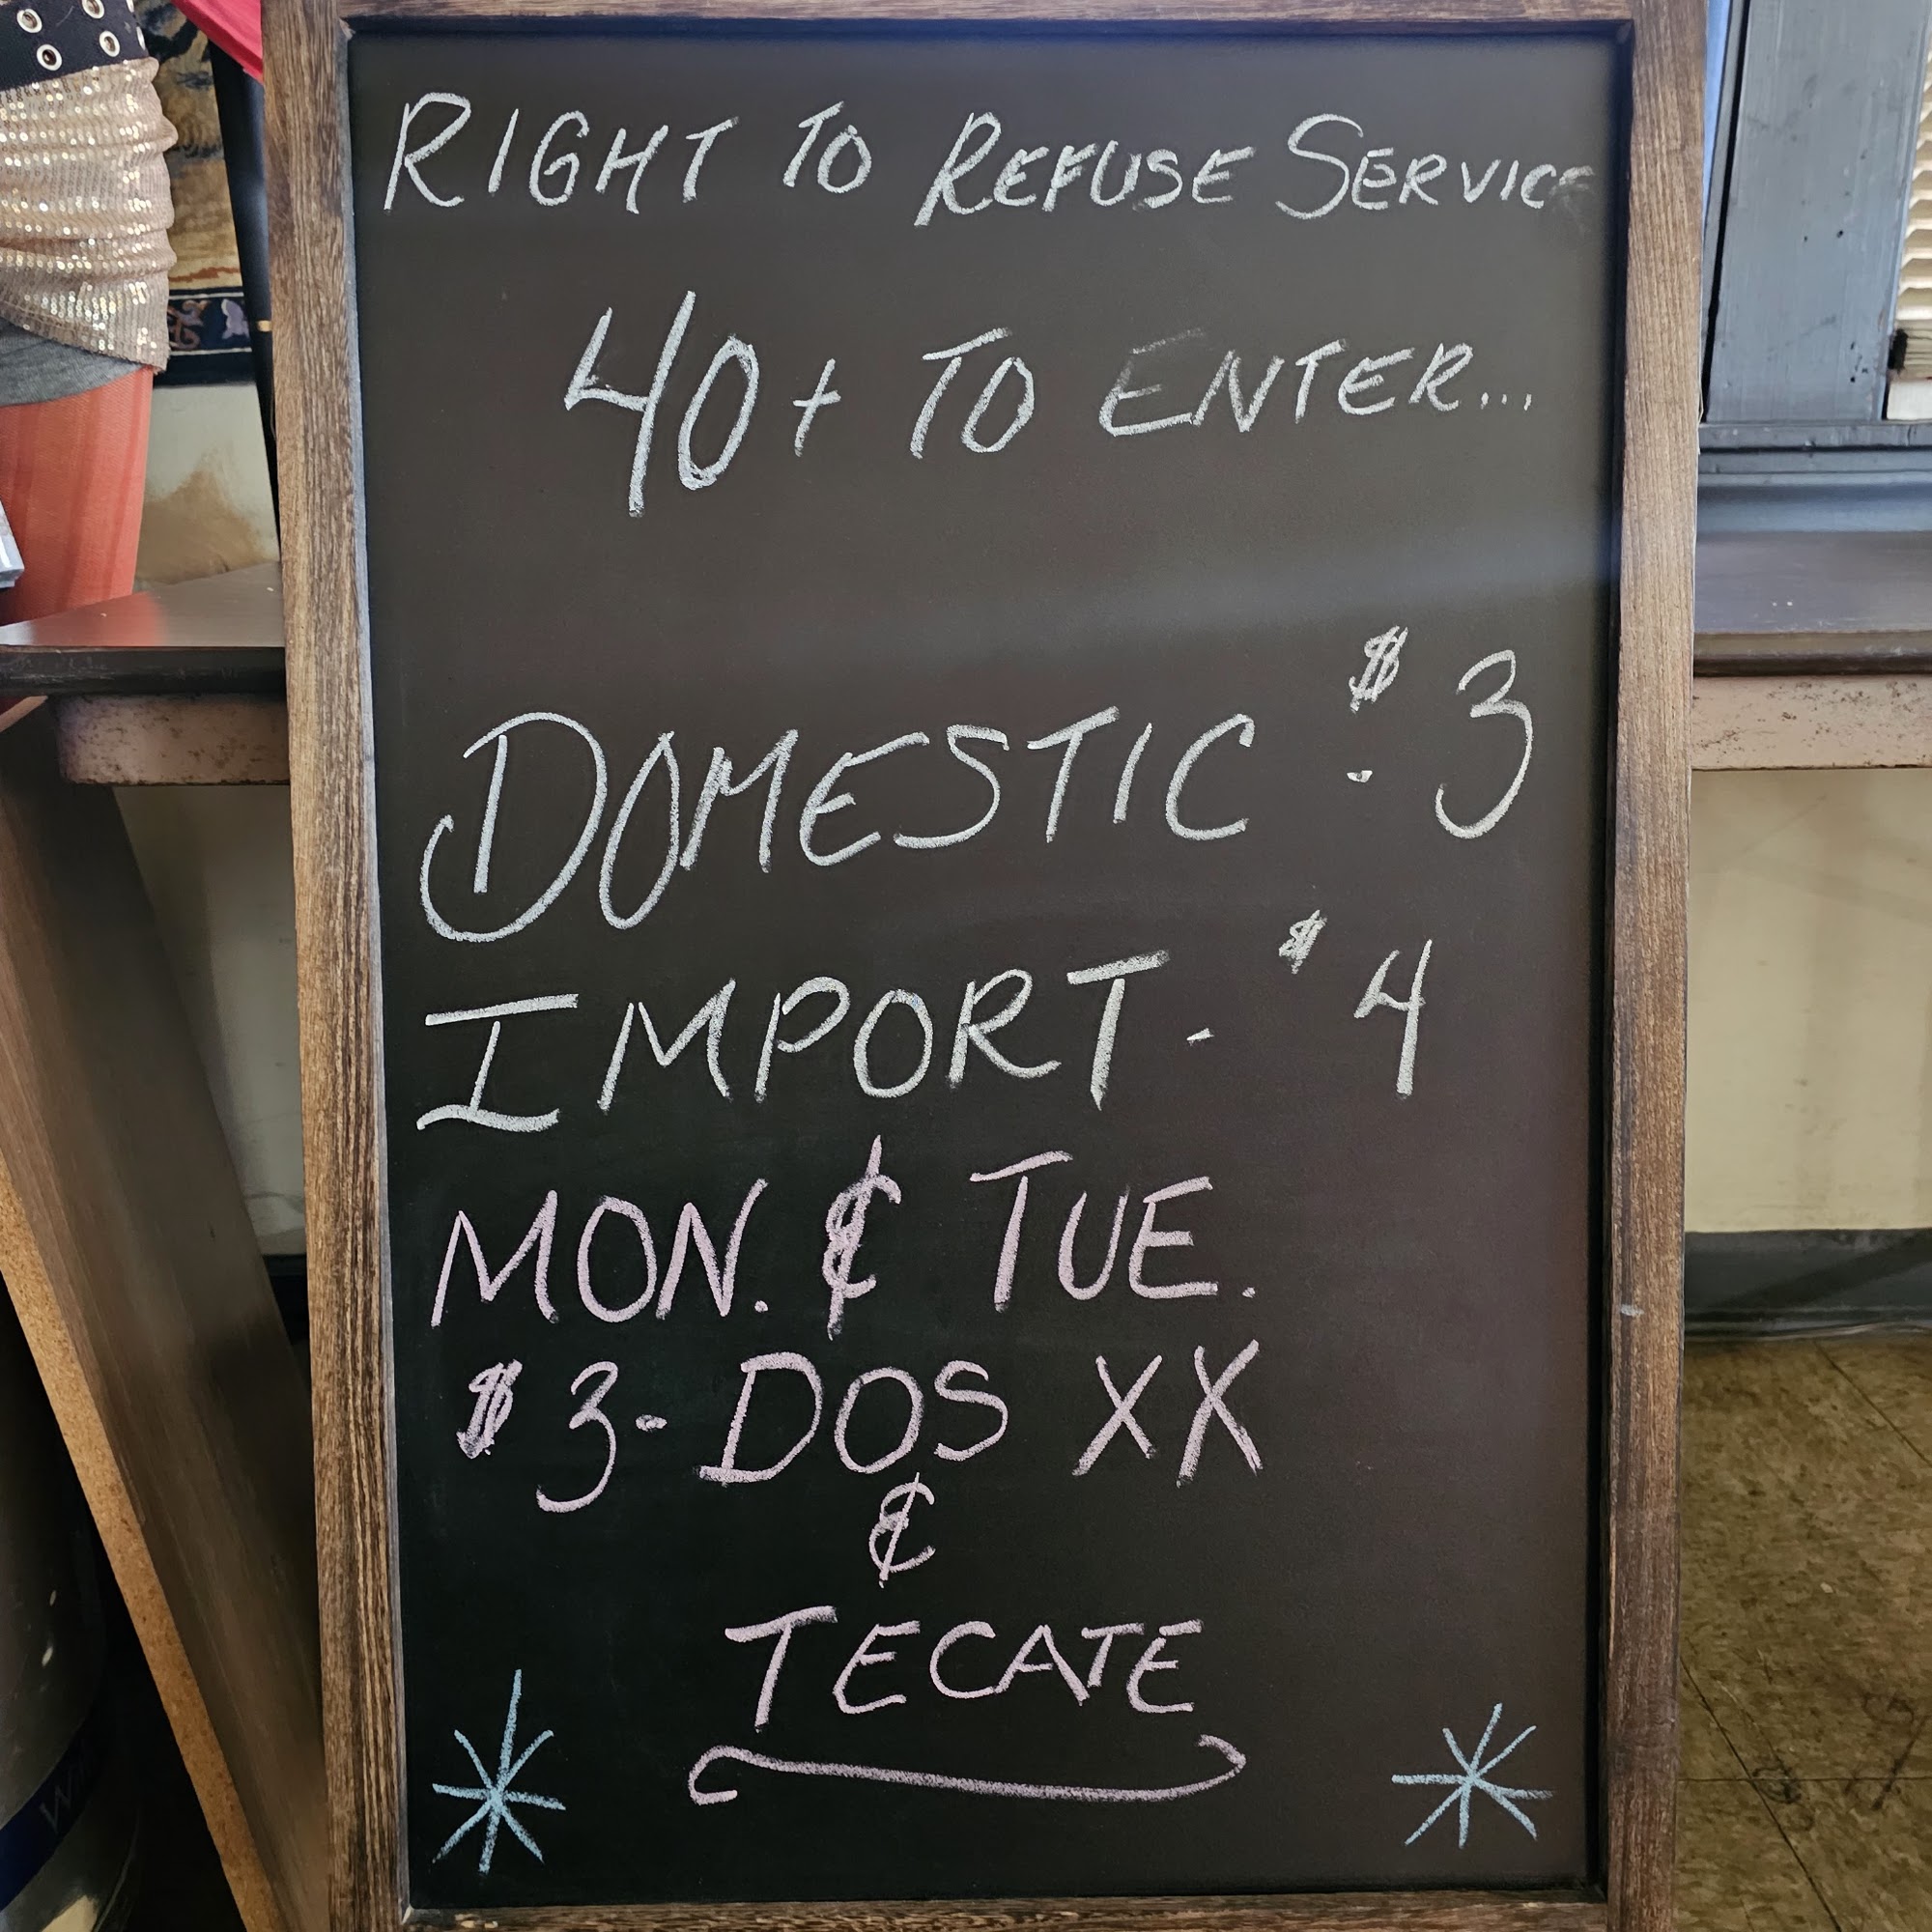 RIGHT TO REFUSE SERVICE
40+ TO ENTER...
DOMESTIC - $3
IMPORT - $4
MON. & TUE.
$3 - DOS XX
&
TECATE